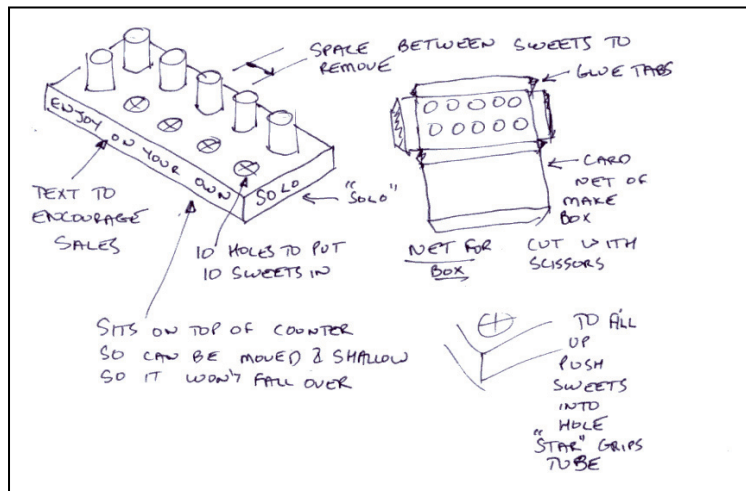 SPACE BETWEEN SWEETS TO
REMOVE
GLUE TABS
ENJOY ON YOUR OWN
SOLO
"SOLO"
TEXT TO
ENCOURAGE
SALES
10 HOLES TO PUT
10 SWEETS IN
CARD
NET OF
MAKE
BOX
NET FOR
BOX
CUT WITH
SCISSORS
SITS ON TOP OF COUNTER
SO CAN BE MOVED & SHALLOW
SO IT WON'T FALL OVER
TO FILL
UP
PUSH
SWEETS
INTO
HOLE
"STAR" GRIPS
TUBE